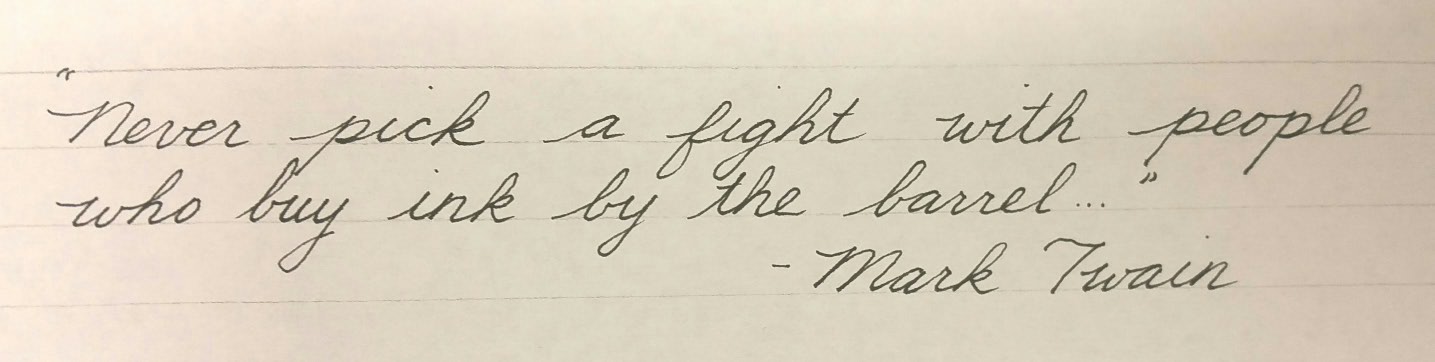 "Never pick a fight with people
who buy ink by the barrel..."
- Mark Twain